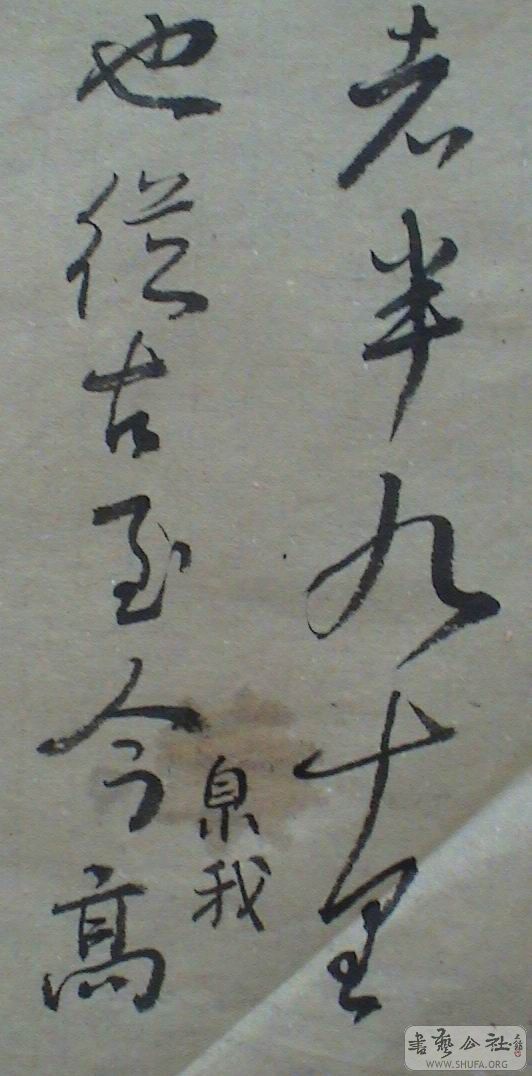 者半九十里
息我
也從古至今高
書藝公社
WWW.SHUFA.ORG